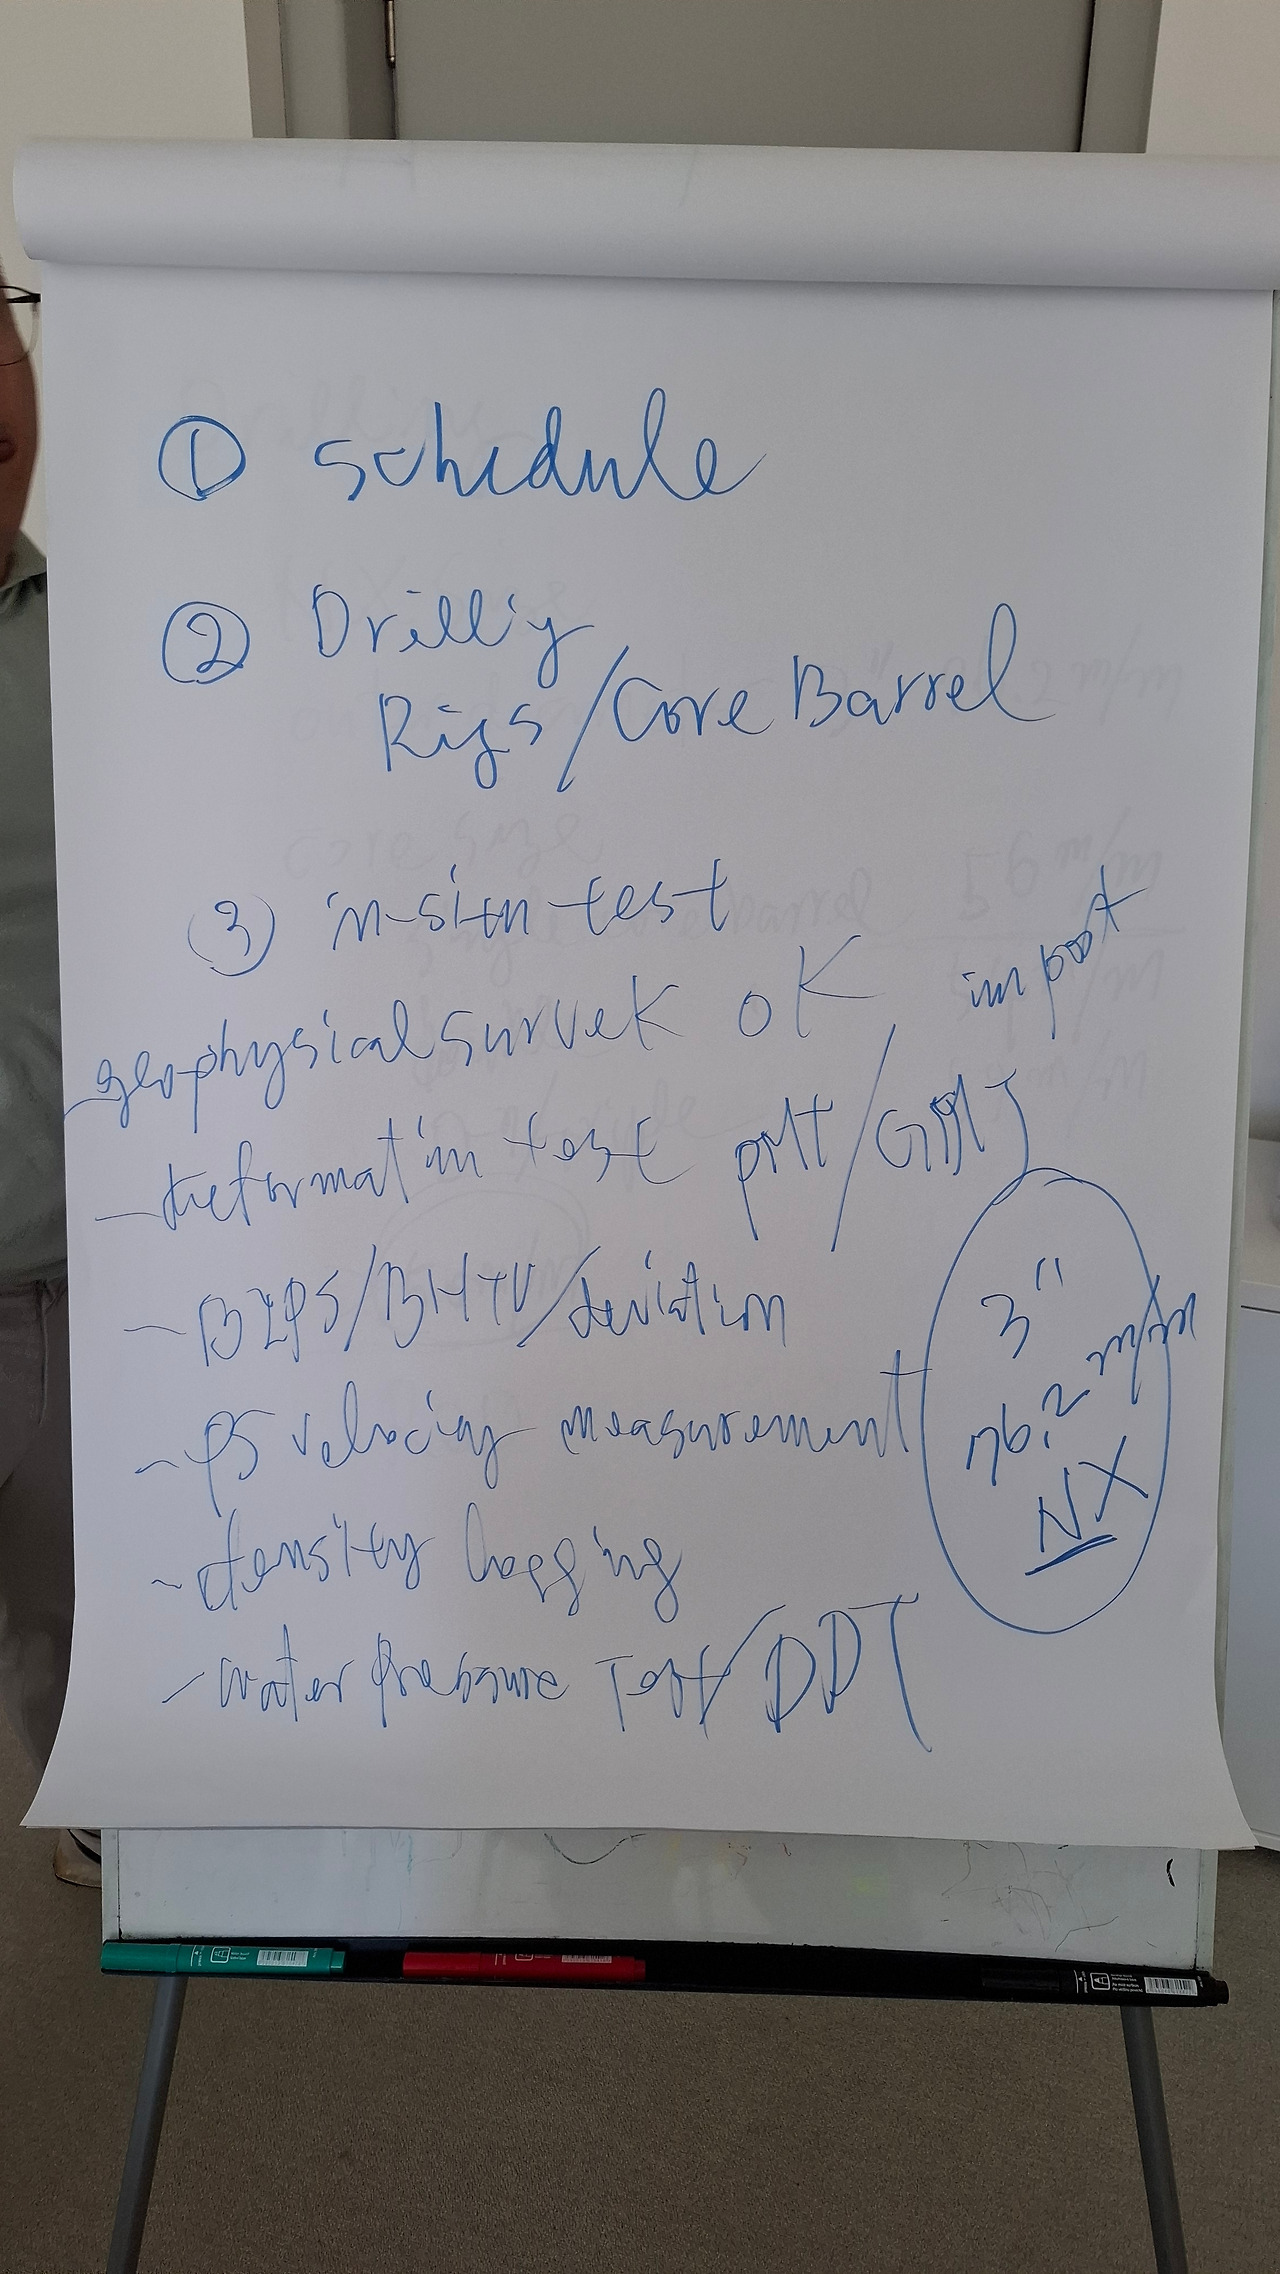 ① schedule
② Drilling
Rigs/Core Barrel
③ in-situ test
geophysical survek OK
import
- deformation test PMT/
- BIPS/BHTV/deviation
- PS velocity measurement
- density logging
- water pressure Test/DDT
3"
76.2 m/m
NX